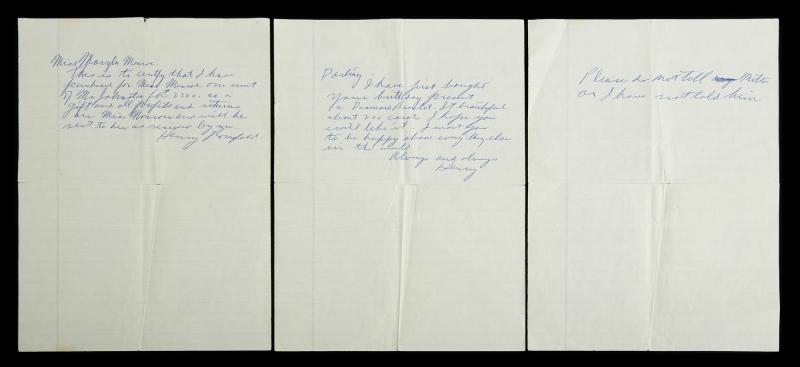 Miss Maryln Monroe
This is to certify that I have
purchase for Miss Monroe one unit
of Mr Johnston for 2200. as a
gift and all profits and returns
are Miss Monroe and will be
sent to her as received by me
Henry
Darling I have first bought
your birthday present
a Diamond Bracelet. It beautiful
about 200 carat. I hope you
will like it. I want you
to be happy above everything else
in the world
Always and always
Henry
Please do not tell Milton
as I have not told him